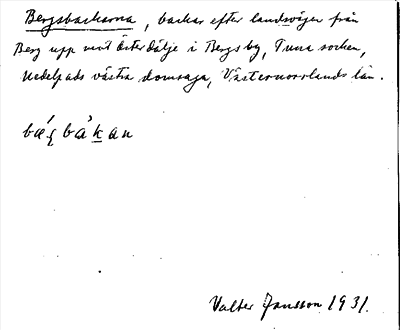 Bergsbackarna, backar efter landsvägen från
Berg upp mot Österdälje i Bergs by, Tuna socken,
Medelpads västra domsaga, Västernorrlands län.
Valter Jansson 1931.